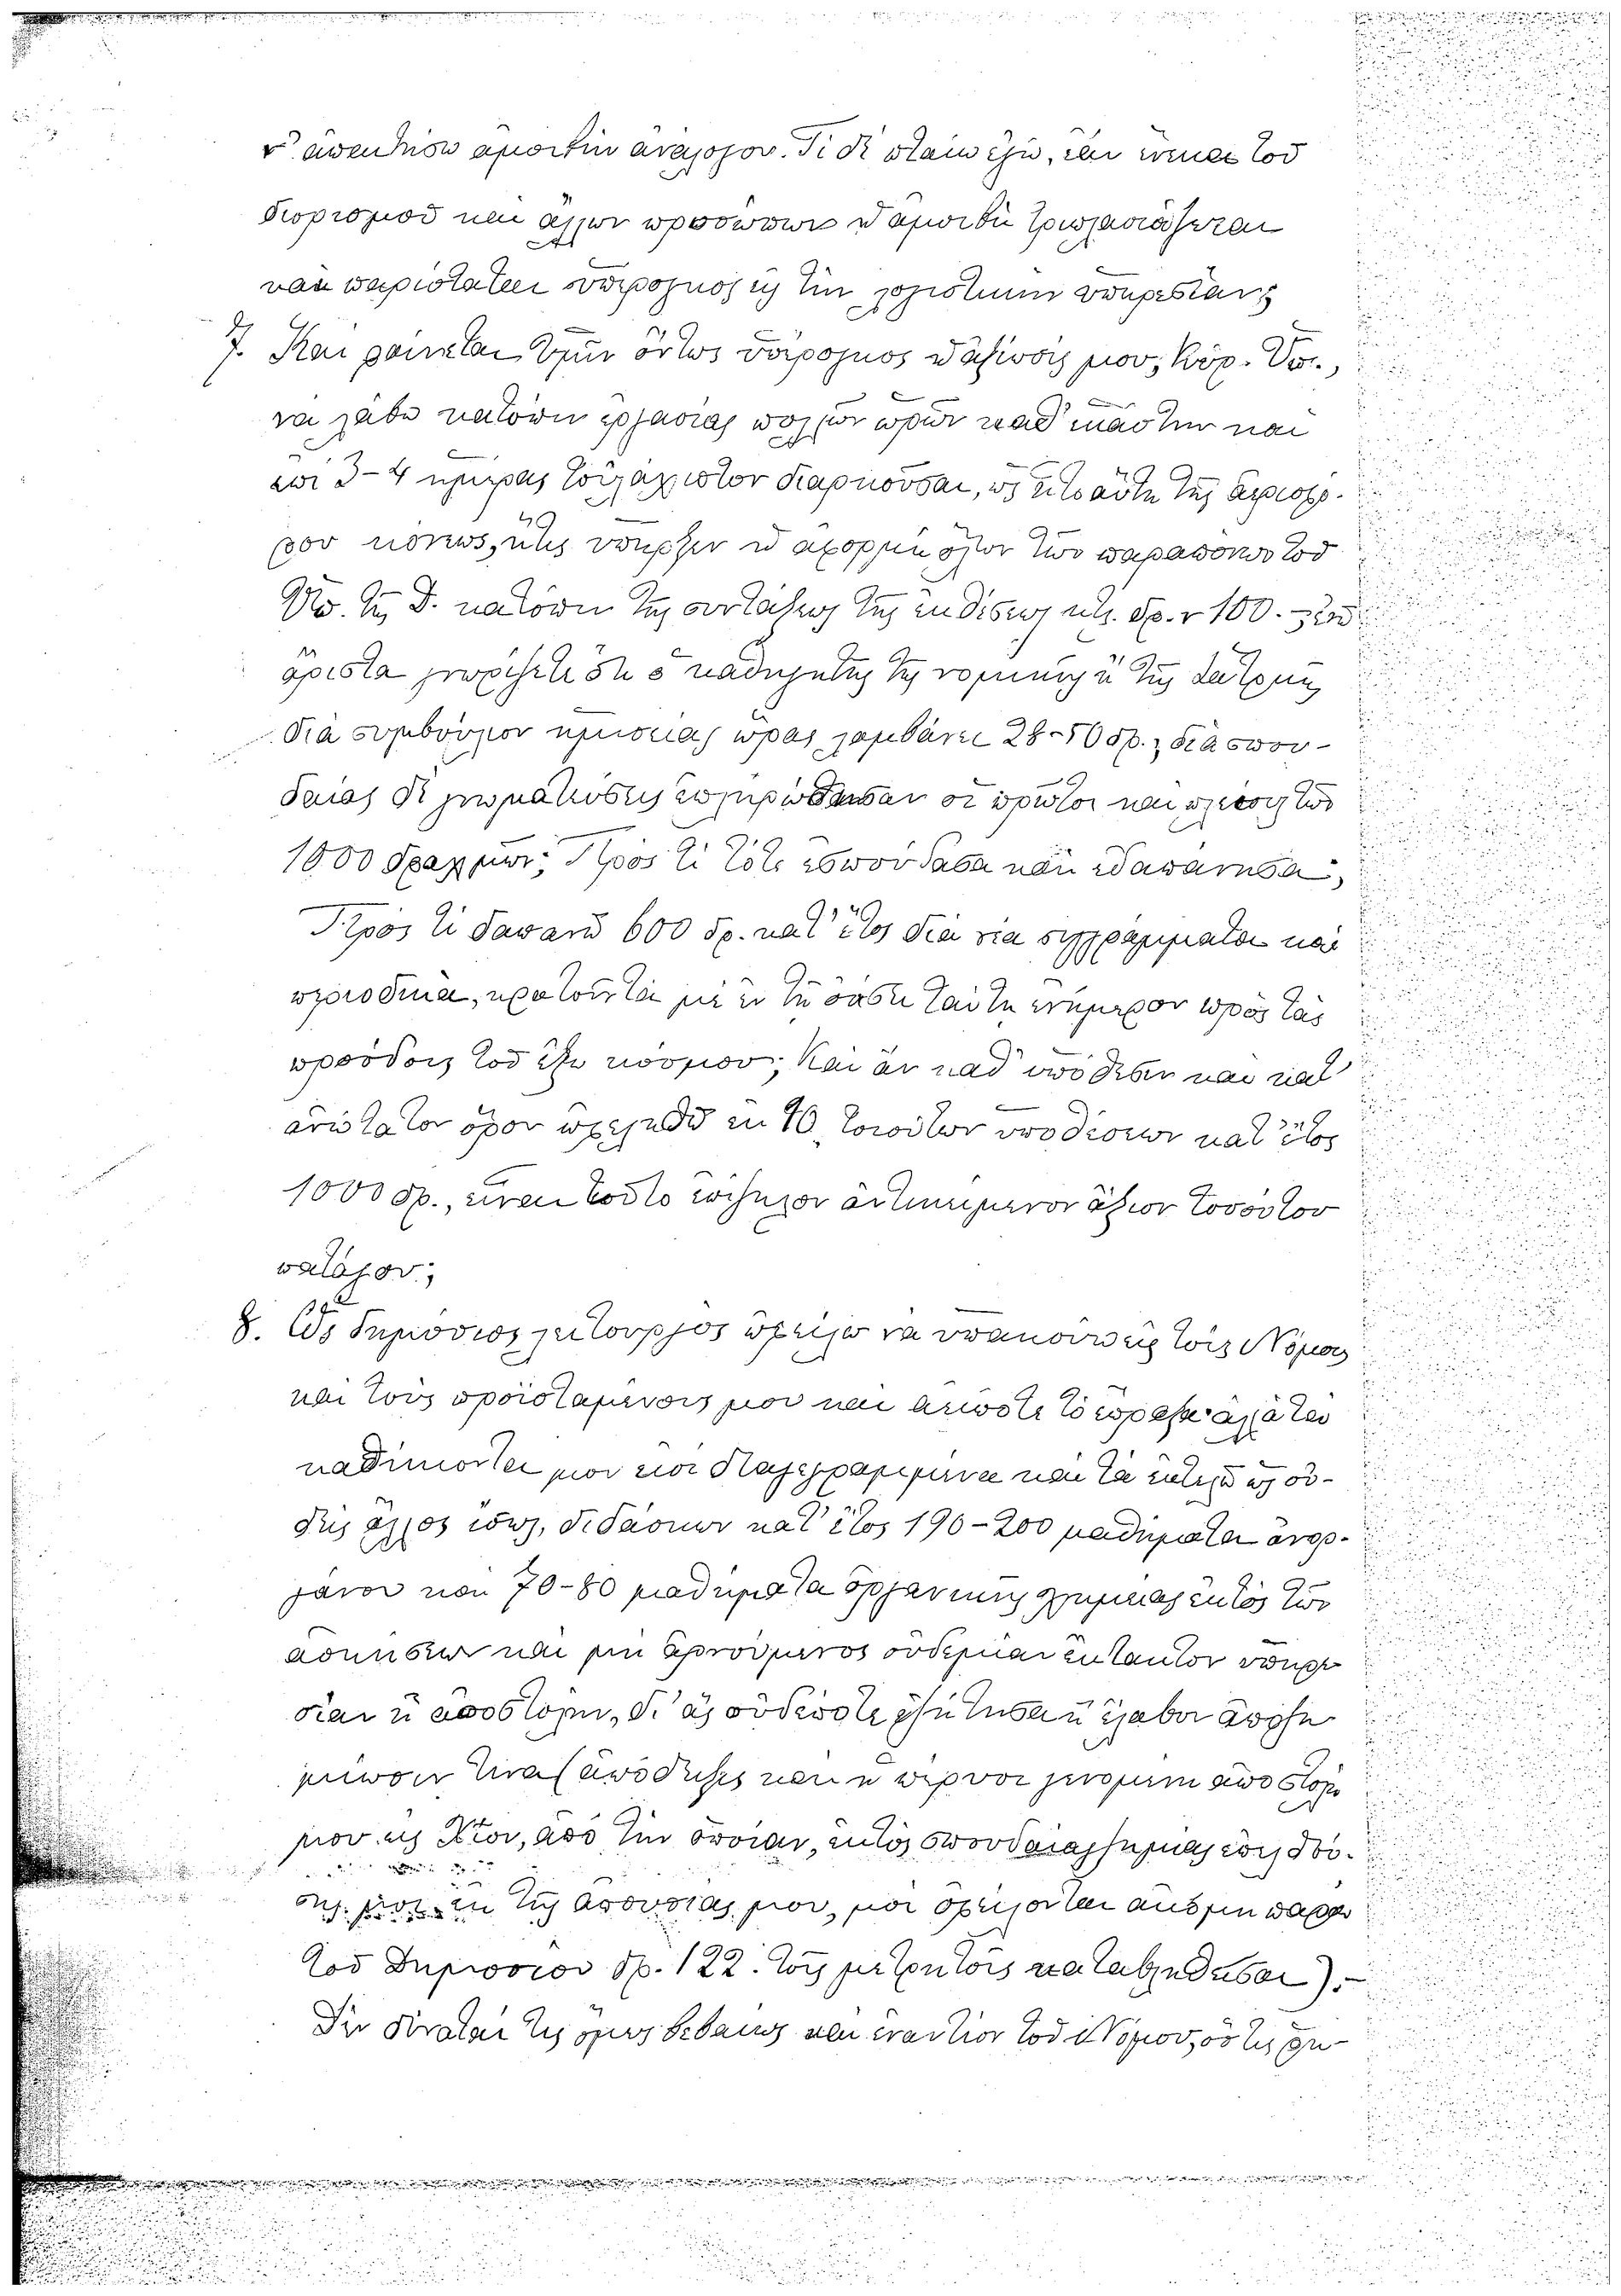 ν' ἀπαιτήσω ἀμοιβὴν ἀνάλογον. Τί δὲ πταίω ἐγώ, ἐὰν ἕνεκα τοῦ
διορισμοῦ καὶ ἄλλων προσώπων ἡ ἀμοιβὴ τριπλασιάζεται
καὶ παρίσταται ὑπέρογκος εἰς τὴν λογιστικὴν ὑπηρεσίαν;
7. Καὶ φαίνεται Ὑμῖν ὄντως ὑπέρογκος ἡ ἀξίωσίς μου, Κύρ. Ὑπ.,
νὰ λάβω κατόπιν ἐργασίας πολλῶν ὡρῶν καθ' ἑκάστην καὶ
ἐπὶ 3-4 ἡμέρας τοὐλάχιστον διαρκούσης, ὡς ἦτο αὕτη τῆς
κόνεως, ἥτις ὑπῆρξεν ἡ ἀφορμὴ ὅλων τῶν παραπόνων τοῦ
Ὑπ. τῆς Δ. κατόπιν τῆς συντάξεως τῆς ἐκθέσεως κτλ. δρ. ν 100.
ἄριστα γνωρίζετε ὅτι ὁ καθηγητὴς τῆς νομικῆς ἢ τῆς ἰατρικῆς
διὰ συμβούλιον ἡμισείας ὥρας λαμβάνει 25-50 δρ., διὰ σπου-
δαίας δὲ γνωματεύσεις ἐπληρώθησαν οἱ πρῶτοι καὶ πλέον τῶν
1000 δραχμῶν; Πρὸς τί τότε ἐσπούδασα καὶ ἐδαπάνησα;
Πρὸς τί δαπανῶ 600 δρ. κατ' ἔτος διὰ νέα συγγράμματα καὶ
περιοδικά, κρατοῦντά με ἐν τῇ τάξει ταύτῃ ἐνήμερον πρὸς τὰς
προόδους τοῦ ἔξω κόσμου; Καὶ ἂν καθ' ὑπόθεσιν καὶ κατ'
ἀνώτατον ὅρον ὠφεληθῶ ἐκ 10 τοιούτων ὑποθέσεων κατ' ἔτος
1000 δρ., εἶναι τοῦτο ἐπίζηλον ἀντικείμενον ἄξιον τοσούτου
πατάγου;
8. Ὡς δημόσιος λειτουργὸς ὀφείλω νὰ ὑπακούω εἰς τοὺς Νόμους
καὶ τοὺς προϊσταμένους μου καὶ ἀείποτε τὸ ἔπραξα· ἀλλὰ τὰ
καθήκοντά μου εἰσὶ διαγεγραμμένα καὶ τὰ ἐκτελῶ ὡς οὐ-
δεὶς ἄλλος ἴσως, διδάσκων κατ' ἔτος 190-200 μαθήματα ἀνορ-
γάνου καὶ 70-80 μαθήματα ὀργανικῆς χημείας ἐκτὸς τῶν
ἀσκήσεων καὶ μὴ ἀρνούμενος οὐδεμίαν ἔκτακτον ὑπηρε-
σίαν ἢ ἀποστολήν, δι' ἃς οὐδέποτε ἐζήτησα ἢ ἔλαβον
τινα (ἀπόδειξις καὶ ἡ πέρυσι γενομένη ἀποστολή
μου εἰς Χίον, ἀπὸ τὴν ὁποίαν, ἐκτὸς σπουδαίας ζημίας
ἐκ τῆς ἀπουσίας μου, μοὶ ὀφείλονται ἀκόμη παρὰ
τοῦ Δημοσίου δρ. 122. τοῖς μετρητοῖς καταβληθεῖσαι).-
Δὲν δύναταί τις ὅμως βεβαίως καὶ ἐναντίον τοῦ Νόμου, ὅστις